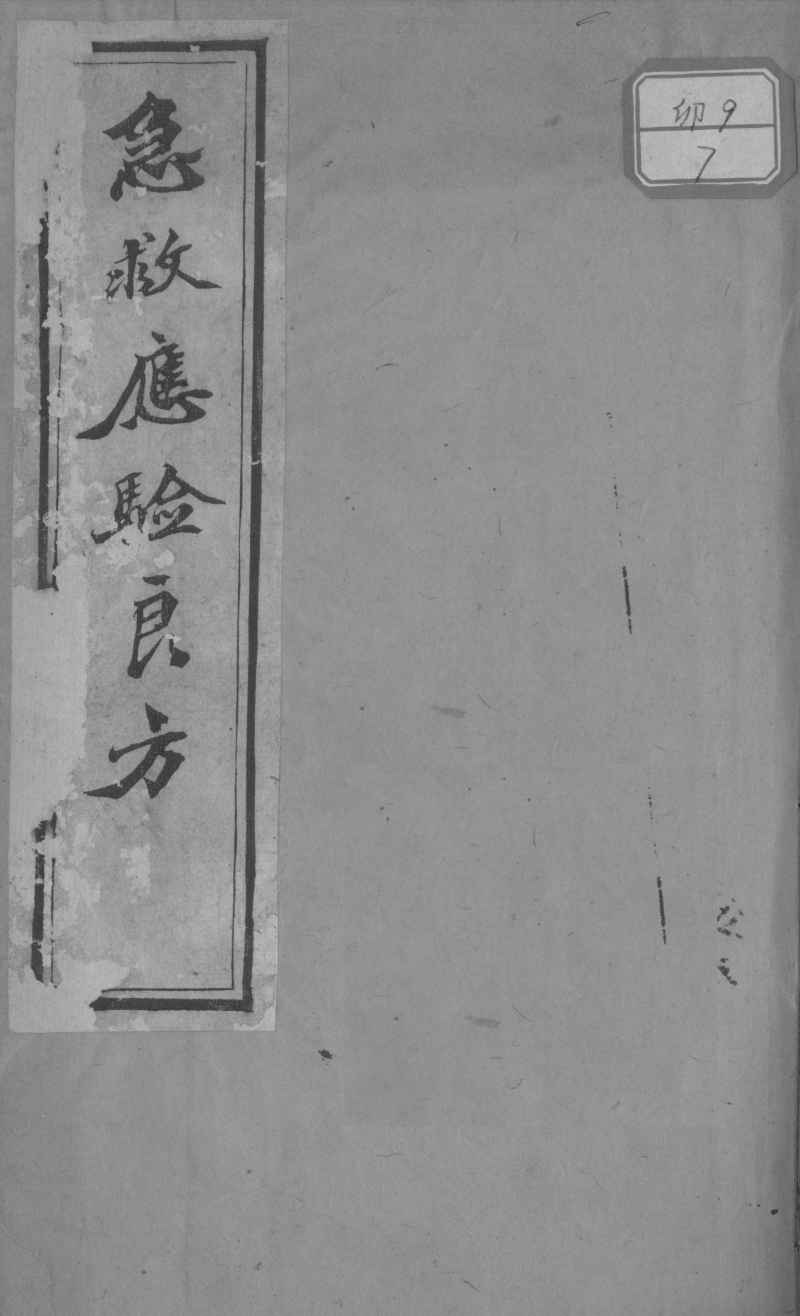 急救應驗良方
卯9
7